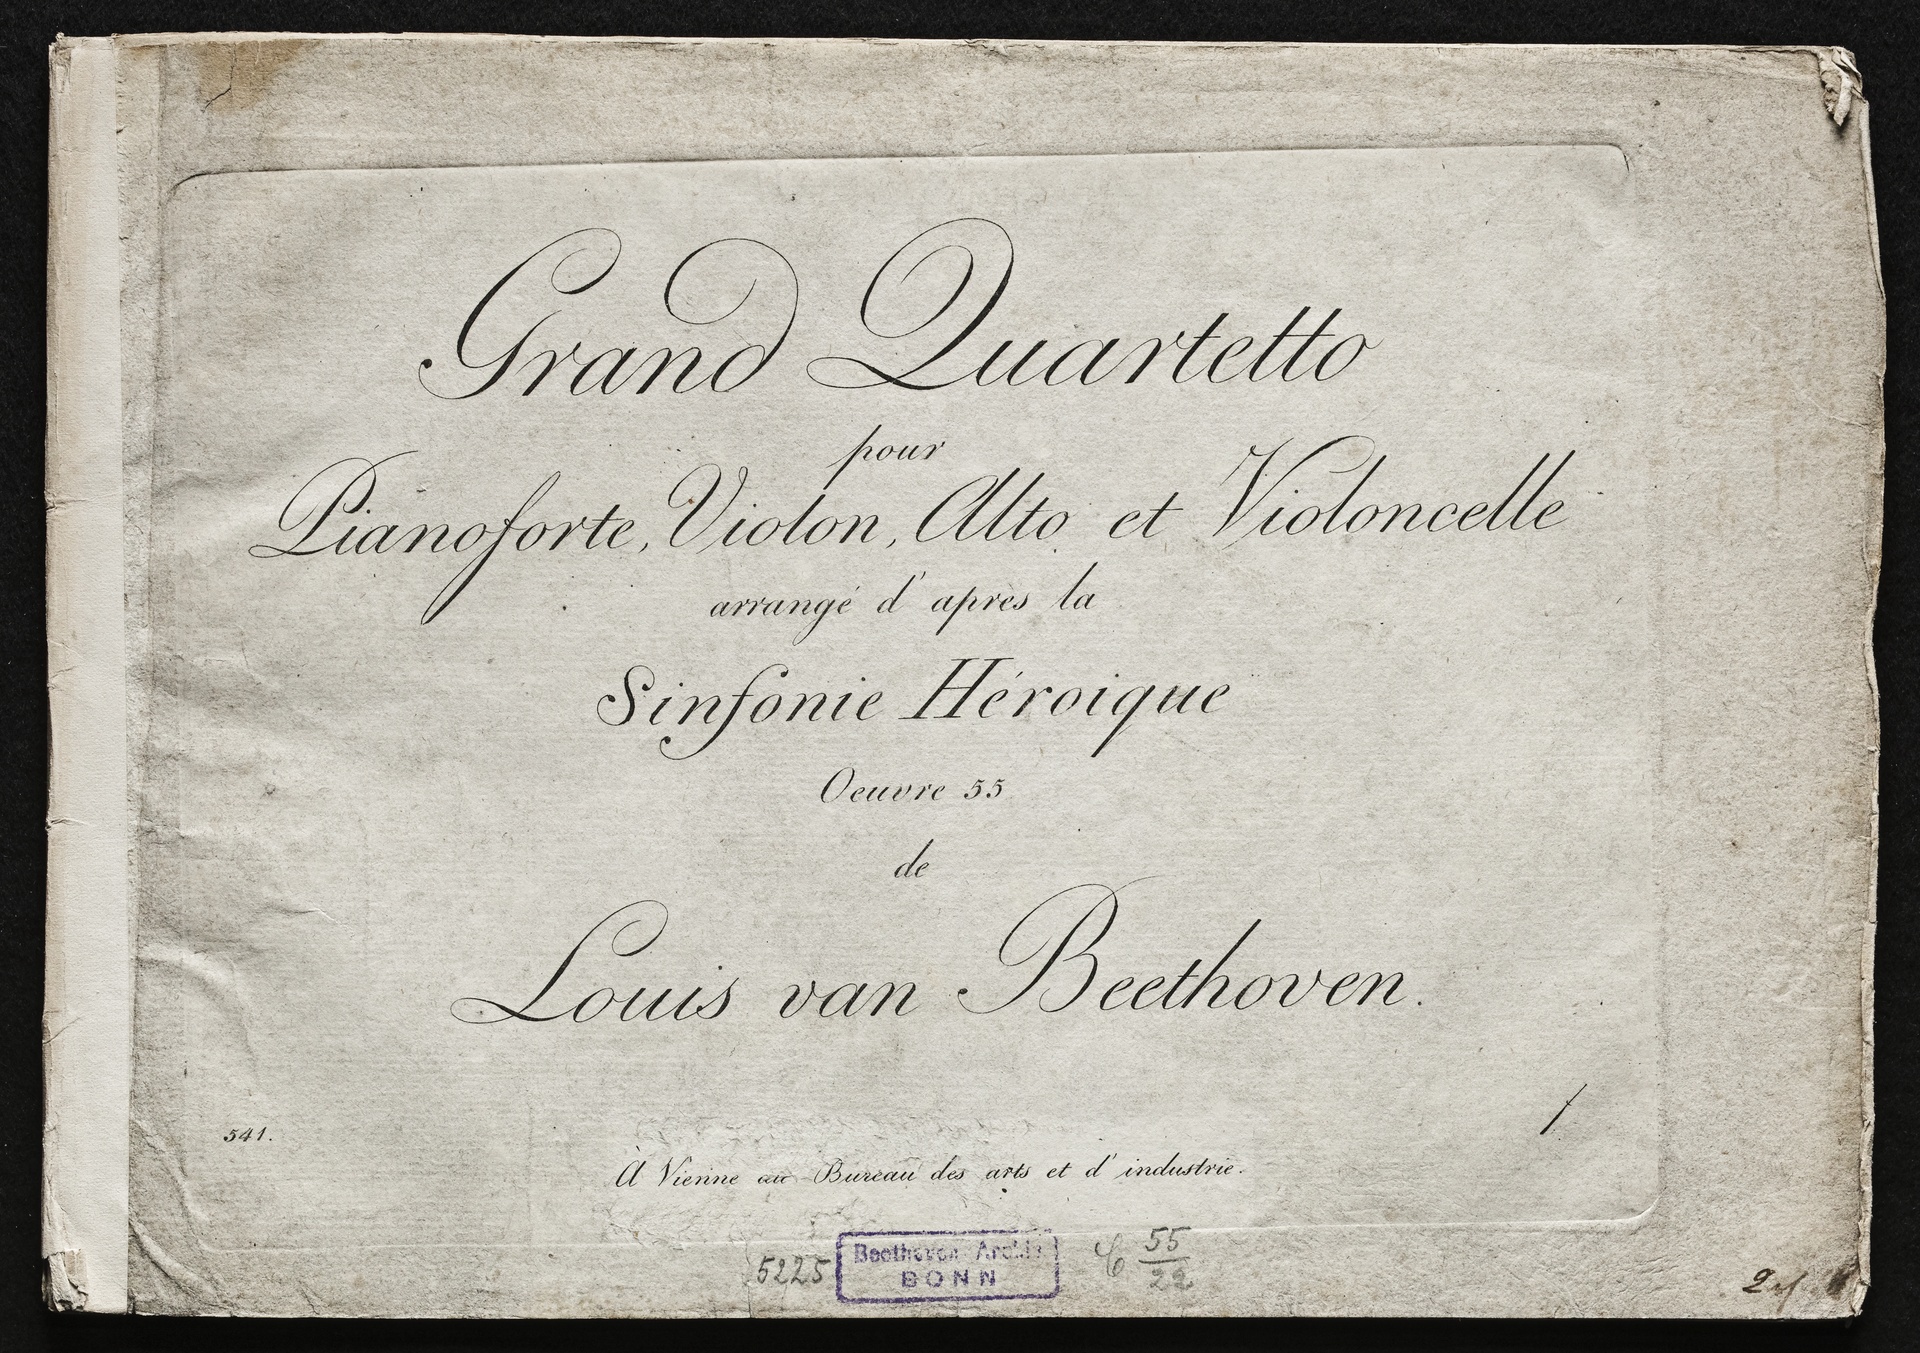 Grand Quartetto
pour
Pianoforte, Violon, Alto et Violoncelle
arrangé d'après la
Sinfonie Héroique
Oeuvre 55
de
Louis van Beethoven.
541.
À Vienne au Bureau des arts et d'industrie.
5225
Beethoven Archiv
BONN
C 55/22